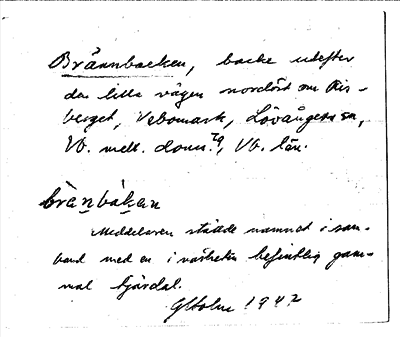 Brännbacken, backe utefter
den lilla vägen nordöst om Ris-
berget, Vebomark, Lövångers sn,
Vb. mell. doms. tg, Vb. län.
brànbàkan
Meddelaren ställde namnet i sam-
band med en i närheten befintlig gam-
mal tjärdal.
GHolm 1942